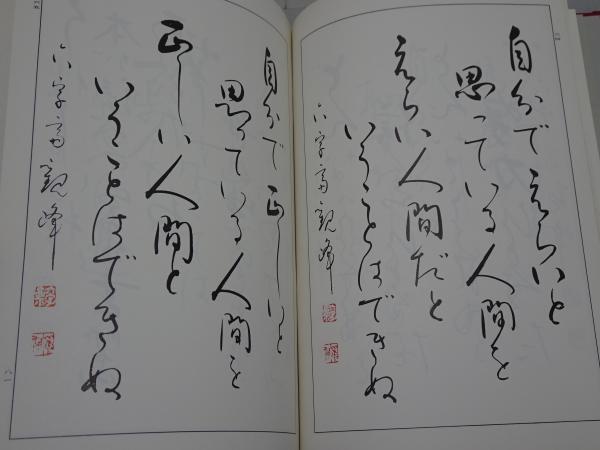 自分でえらいと
思っている人間を
えらい人間だと
いうことはできぬ
六字庵観峰
自分で正しいと
思っている人間を
正しい人間と
いうことはできぬ
六字庵観峰